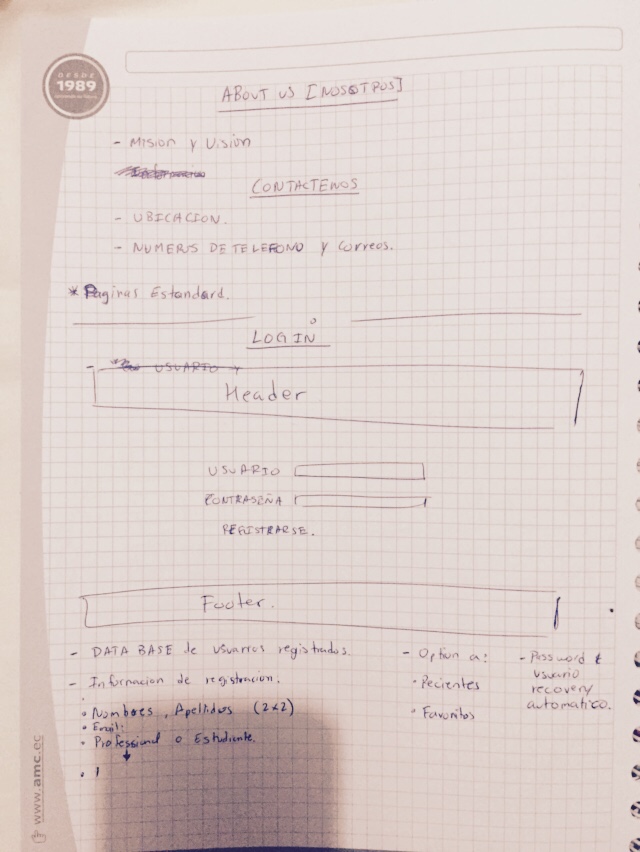 DESDE
1989
ABOUT US [NOSOTROS]
- MISION Y VISION
CONTACTENOS
- UBICACION.
- NUMEROS DE TELEFONO Y Correos.
* Paginas Estandard.
LOGIN
- USUARIO
Header
USUARIO
CONTRASEÑA
REGISTRARSE.
Footer.
- DATA BASE de usuarios registrados.
- Informacion de registracion.
• Nombres, Apellidos (2x2)
• Email:
• Professional o Estudiante.
• 1
- Option a:
• Recientes
• Favoritos
- Password &
usuario
recovery
automatico.
www.amc.ec